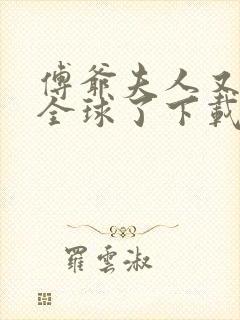 傅爺夫人又
全球了下載
羅雲淑